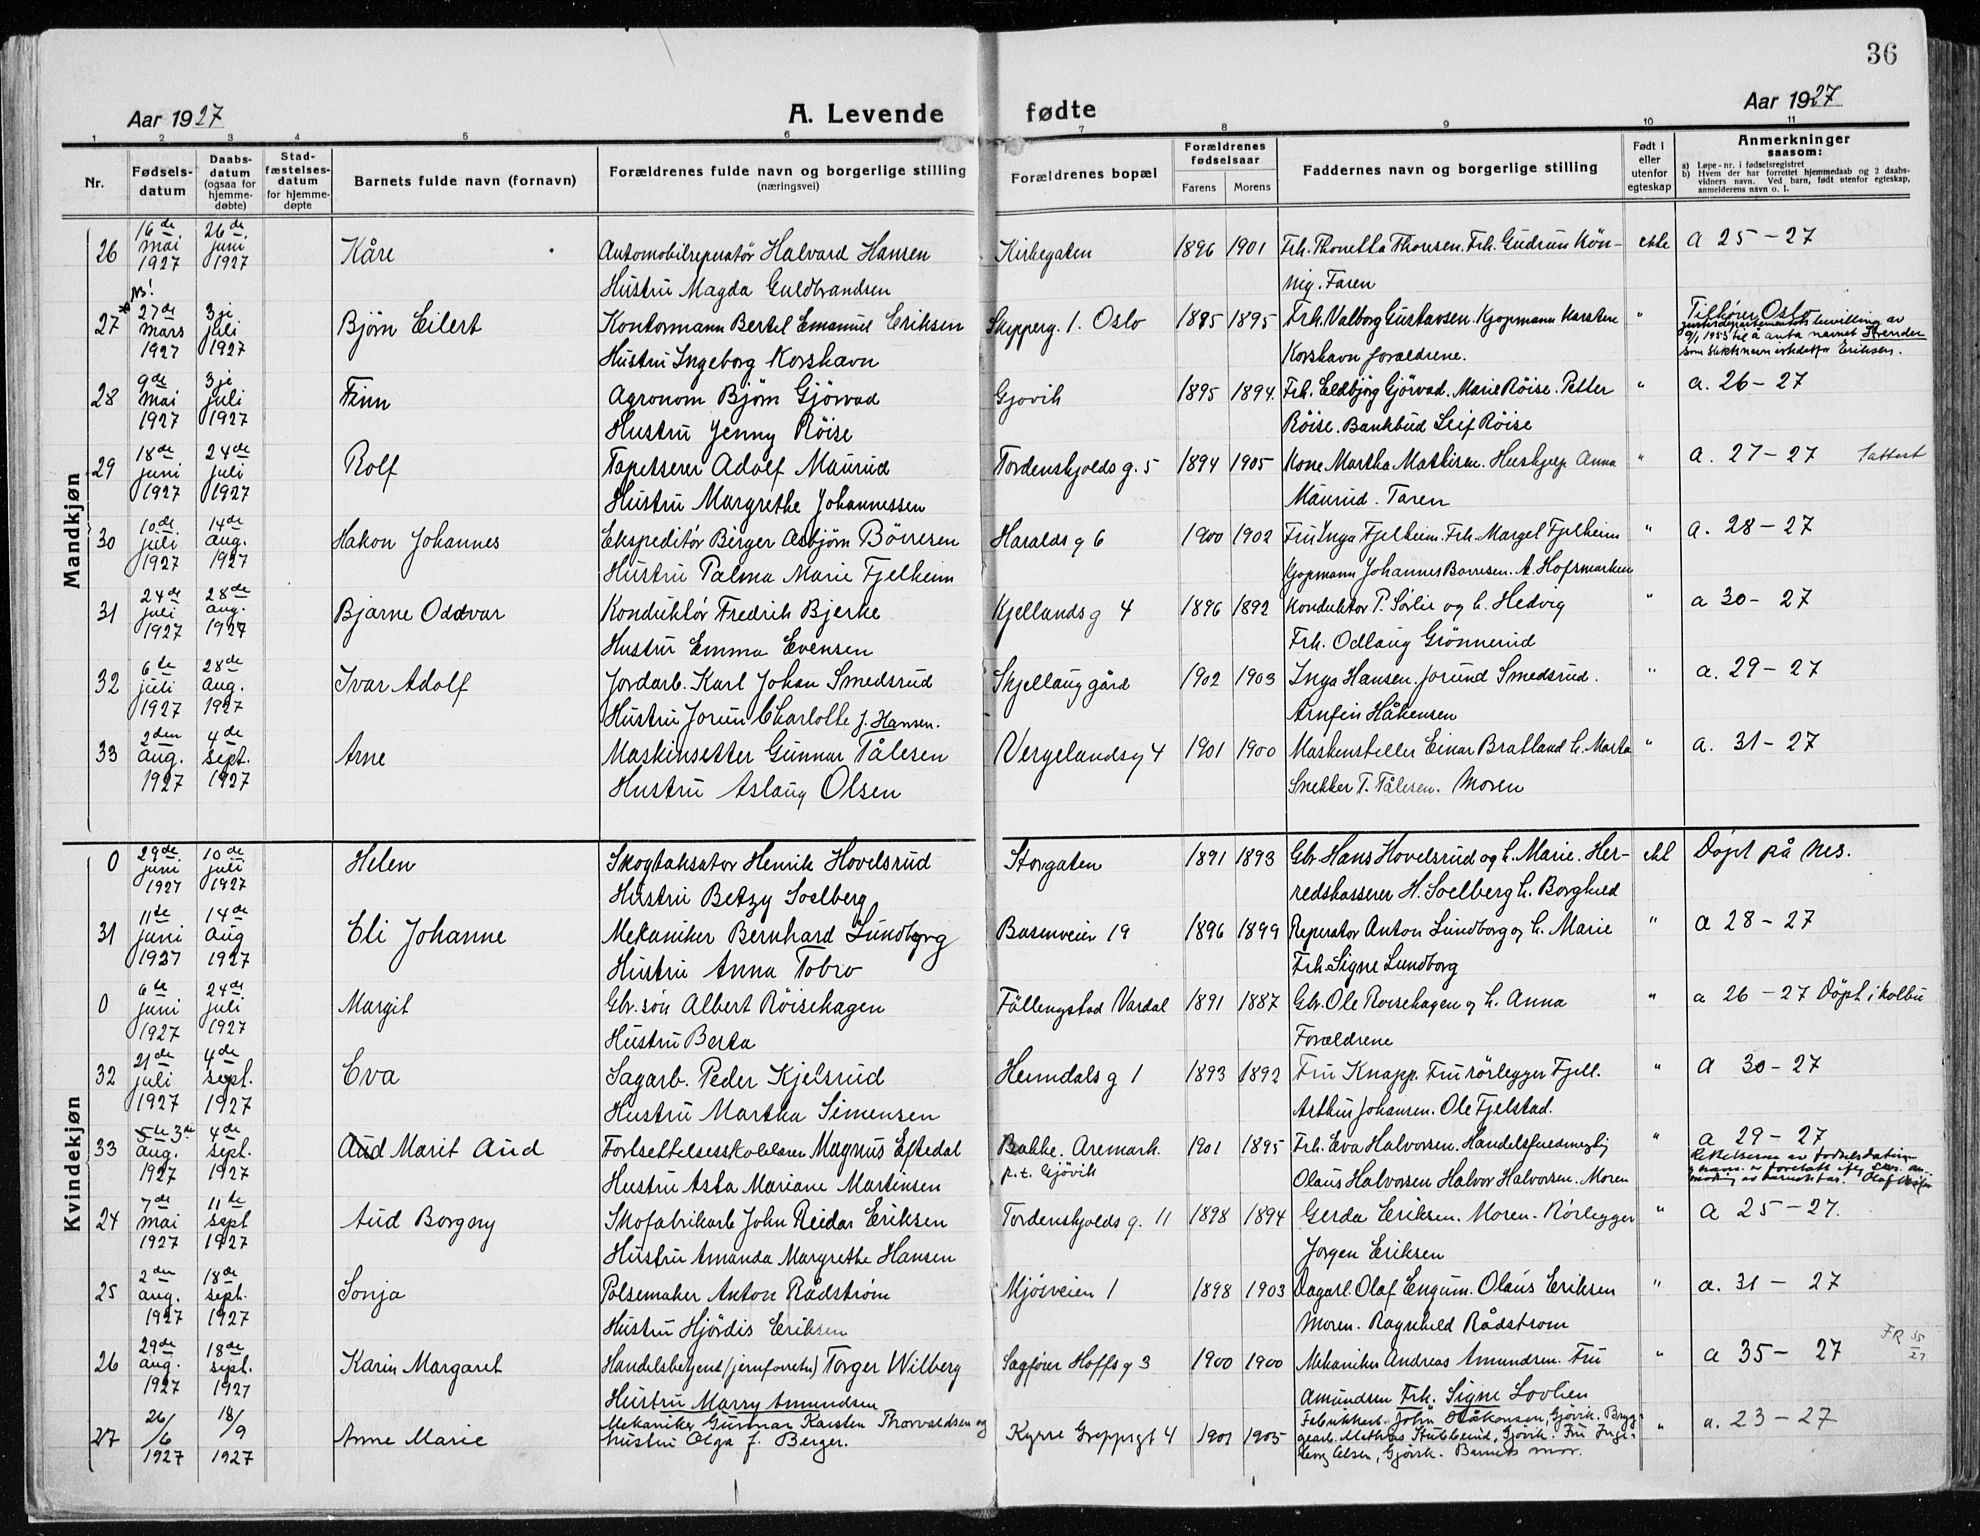 36
Aar 1927
A. Levende fødte
Aar 1927
1 2 3 4 5 6 7 8 9 10 11
Nr.
Fødsels-
datum
Daabs-
datum
(ogsaa for
hjemme-
døbte)
Stad-
fæstelses-
datum
for hjemme-
døpte
Barnets fulde navn (fornavn)
Forældrenes fulde navn og borgerlige stilling
(næringsvei)
Forældrenes bopæl
Forældrenes
fødselsaar
Farens Morens
Faddernes navn og borgerlige stilling
Født i
eller
utenfor
egteskap
Anmerkninger
saasom:
a) Løpe-nr. i fødselsregistret
b) Hvem der har forrettet hjemmedaab og 2 daabs-
vidners navn. Ved barn, født utenfor egteskap,
anmelderens navn o. l.
Mandkjøn
26 16de mai 1927 26de juni 1927 Kåre Automobilreperatør Halvard Hansen Kirkegaten 1896 1901 Frk. Thonetta Thoresen. Frk. Gudrun Kön- ekte a 25-27
Hustru Magda Guldbrandsen nig. Faren
NB!
27 27de mars 1927 3je juli 1927 Bjørn Eilert Kontormann Bertel Emanuel Eriksen Skipperg. 1. Oslo 1895 1895 Frk. Valborg Gustavsen. Kjøpmann Karsten " Tilhører Oslo
Hustru Ingeborg Korshavn Korshavn foreldrene.
justisdepartementets bevilling av
9/1 1953 til å anta navnet Strender
som slektsnavn istedetfor Eriksen.
28 9de mai 1927 3je juli 1927 Finn Agronom Bjørn Gjörvad Gjøvik 1895 1894. Frk. Eldbjörg Gjörvad. Marie Röise. Petter " a. 26-27
Hustru Jenny Röise Röise. Bankbud Leif Röise
29 18de juni 1927 24de juli 1927 Rolf Tapetserer Adolf Maurud Tordenskjolds g. 5 1894 1905 Kone Martha Mathisen. Hushjelp Anna " a. 27-27 1 attest
Hustru Margrethe Johannessen Maurud. Faren
30 10de juli 1927 14de aug. 1927 Hakon Johannes Ekspeditör Birger Asbjørn Börresen Haralds g 6 1900 1902 Fru Inga Fjelheim. Frk. Margel Fjelheim " a. 28-27
Hustru Palma Marie Fjelheim Kjøpmann Johannes Børresen. A. Hofsmarken
31 24de juli 1927 28de aug. 1927 Bjarne Oddvar Konduktör Fredrik Bjerke Kjellands g 4 1896 1892 Konduktør P. Sørlie og h. Hedvig " a 30-27
Hustru Emma Evensen Frk. Odlaug Grönnerud
32 6te juli 1927 28de aug. 1927 Ivar Adolf Jordarb. Karl Johan Smedsrud Skjellaug gård 1902 1903 Inga Hansen. Jorund Smedsrud. " a. 29-27
Hustru Jorun Charlotte J. Hansen. Arnfin Håkensen
33 2den aug. 1927 4de sept. 1927 Arne Maskinsetter Gunnar Tålesen Vergelandsg 4 1901 1900 Maskenstiller Einar Bratland h. Marta " a. 31-27
Hustru Aslaug Olsen Snekker T. Tålesen. Moren
Kvindekjøn
0 29de juni 1927 10de juli 1927 Helen Skogtaksator Henrik Hovelsrud Storgaten 1891 1893 Gbr. Hans Hovelsrud og h. Marie. Her- ekt Døpt på Nes.
Hustru Betzy Soelberg redskasserer H. Soelberg h. Borghild
31 11te juni 1927 14de aug 1927 Eli Johanne Mekaniker Bernhard Lundborg Basenveien 19 1896 1899 Reperatør Anton Lundborg og h. Marie " a 28-27
Hustru Anna Tobro Frk. Signe Lundborg
0 6te juni 1927 24de juli 1927 Margit Gbr. søn Albert Röisehagen Füllengstad Vardal 1891 1887 Gbr. Ole Roisehagen og h. Anna " a 26-27 Döpt i Kolbu
Hustru Berta Foreldrene
32 21de juli 1927 4de sept. 1927 Eva Sagarb. Peder Kjelsrud Heimdals g 1 1893 1892 Fru Knapp. Fru rørlegger Fjell. " a 30-27
Hustru Martha Simensen Arthur Johansen. Ole Fjelstad.
33 5te 3de aug. 1927 4de sept. 1927 Aud Marit Aud Fortsettelsesskolelærer Magnus Eftedal Bakke. Aremark. 1901 1895 Frk. Eva Halvorsen. Handelsfuldmegtig " a 29-27
Hustru Asta Mariane Martinsen p.t. Gjövik Olaus Halvorsen Halvor Halvorsen. Moren
Rettelserne av fødselsdatum
24 7de mai 1927 11te sept 1927 Aud Borgny Skofabrikarb John Reidar Eriksen Tordenskjolds g. 11 1898 1894 Gerda Eriksen. Moren. Rörlegger " a 25-27.
Hustru Amanda Margrethe Hansen Jørgen Eriksen
25 2den aug. 1927 18de sept. 1927 Sonja Pølsemaker Anton Rådstrøm Mjösveien 1 1898 1903 Dagarb. Olaf Engum. Olaus Eriksen " a. 31-27
Hustru Hjördis Eriksen Moren. Ragnhild Rådstrøm
26 29de aug. 1927 18de sept. 1927 Karin Margaret Handelsbetjent (jernforretn.) Torger Wilberg Sagfører Hoffs g 3 1900 1900 Mekaniker Andreas Amundsen. Fru " a 35-27 FR 35/27
Hustru Marry Amundsen Amundsen Frk. Signe Lovlien
27 26/6 1927 18/9 1927 Anne Marie Mekaniker Gunnar Karsten Thorvaldsen og Kyrre Greppsgt 4 1901 1905 Fabrikkarb. John Håkonsen, Gjövik. Brygg- " a. 23-27
hustru Olga J. Berger. gearb. Mathias Stubberud, Gjövik. Fru Inge-
borg Olsen, Gjövik. Barnets mor.